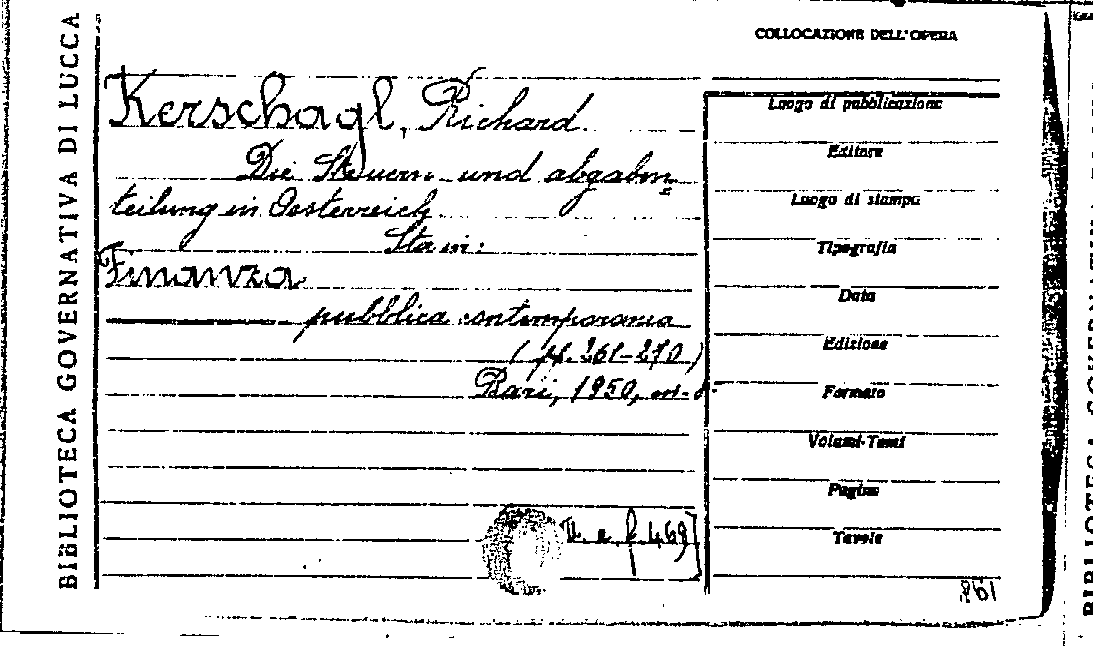 BIBLIOTECA GOVERNATIVA DI LUCCA
COLLOCAZIONE DELL'OPERA
Kerschagl, Richard
Die Steuern und abgaben
teilung in Oesterreich
Sta in:
Finanza
pubblica contemporanea
(pp. 261-270)
Bari, 1950, in-8.
469]
Luogo di pubblicazione
Editore
Luogo di stampa
Tipografia
Data
Edizione
Formato
Volumi-Tomi
Pagine
Tavole